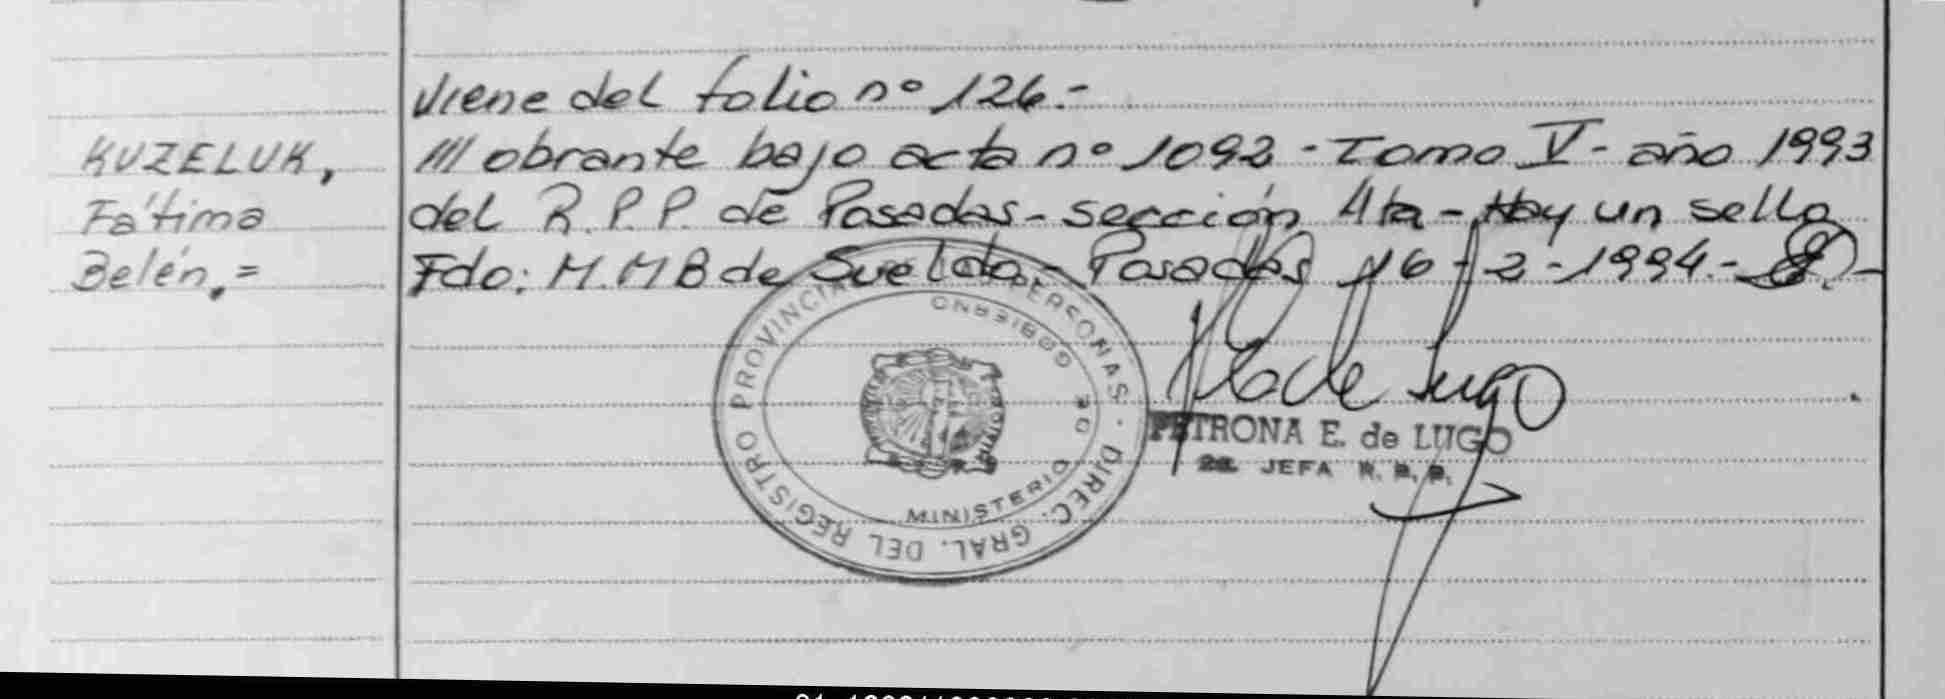 Viene del folio nº 126.-
KUZELUK,
Fátima
Belén.=
/// obrante bajo acta nº 1092 - Tomo V - año 1993
del R.P.P. de Posadas - sección 4ta - Hay un sello
Fdo: M.M B de Sueldo - Posadas 16 - 2 - 1994.-
DIREC. GRAL. DEL REGISTRO PROVINCIAL PERSONAS.
MINISTERIO DE GOBIERNO
de Lugo
PETRONA E. de LUGO
2a. JEFA R. P. P.